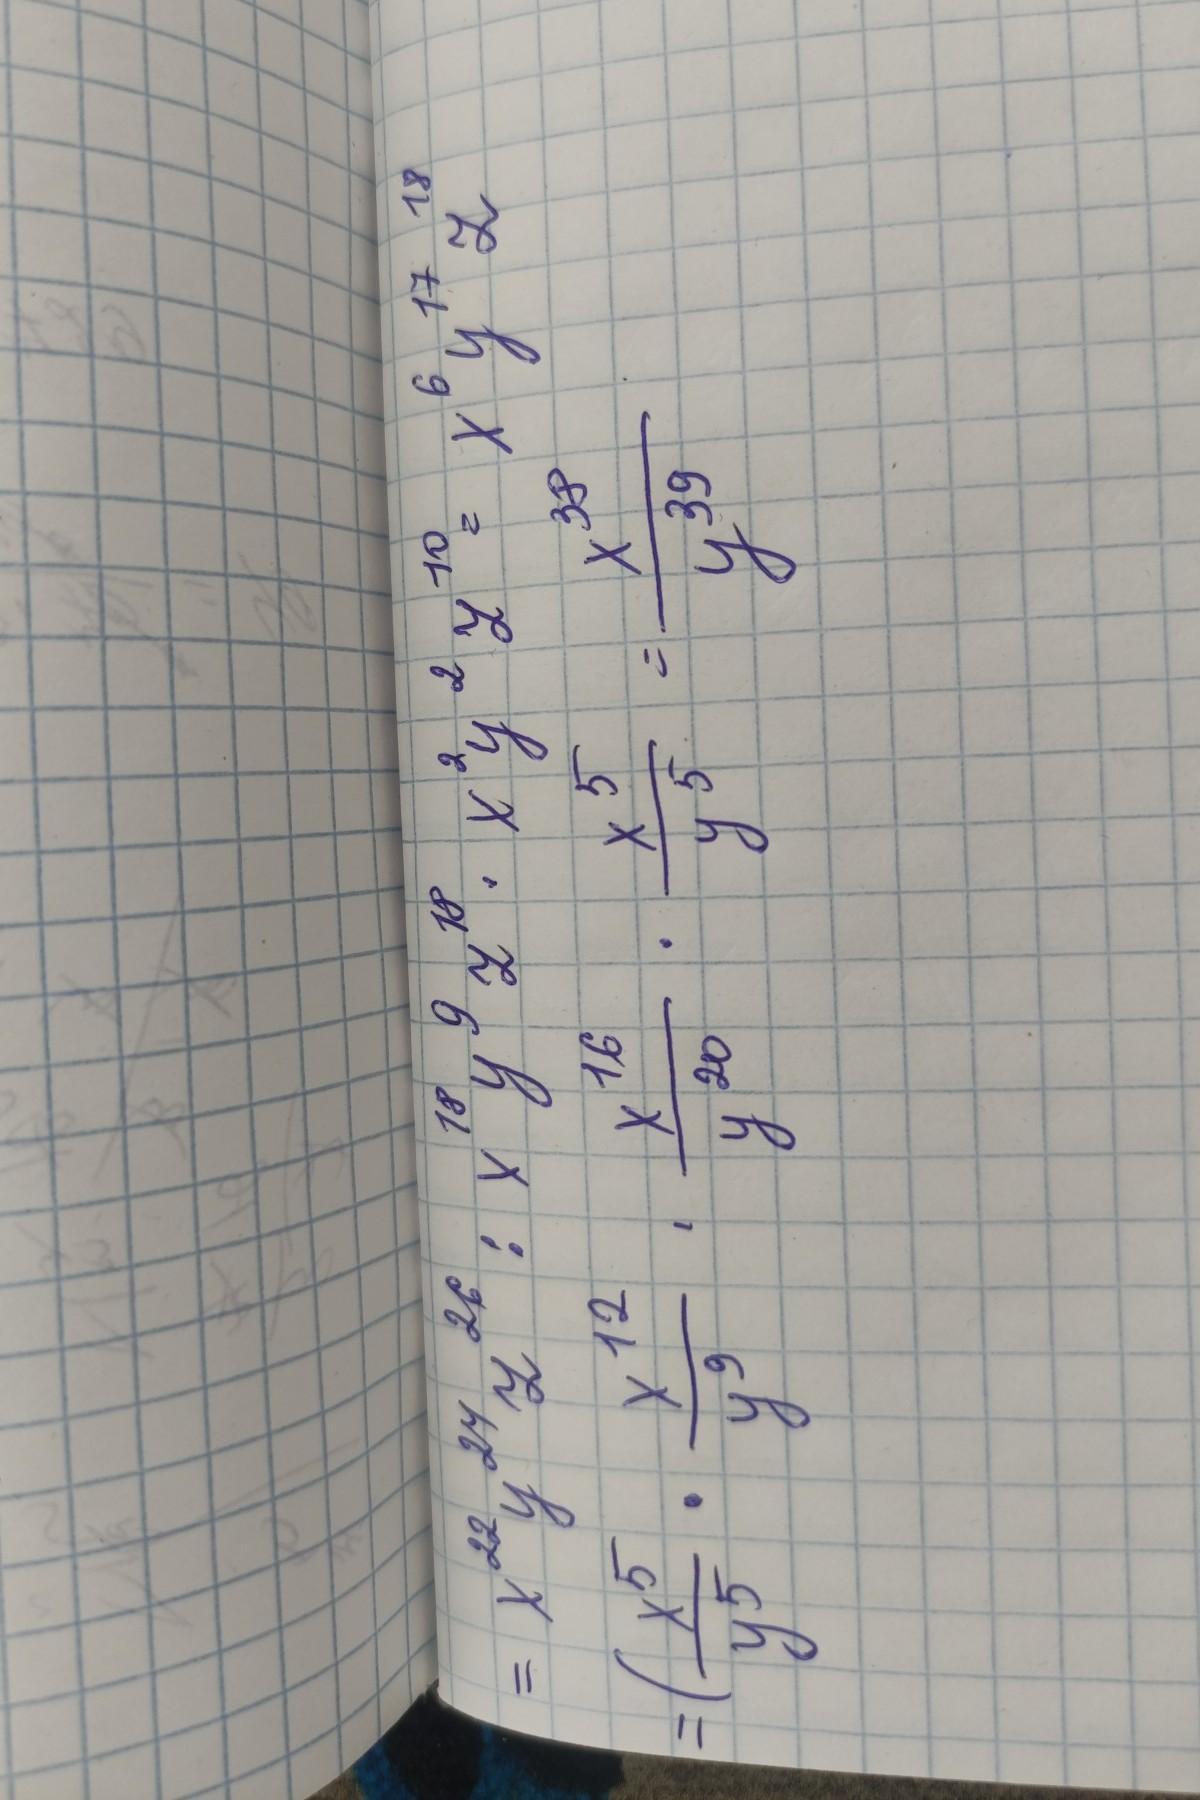 = x²²y²⁴z²⁶ : x¹⁸y⁹z¹⁸ · x²y²z¹⁰ = x⁶y¹⁷z¹⁸
= (x⁵/y⁵ · x¹²/y⁹ · x¹⁶/y²⁰ · x⁵/y⁵ = x³⁸/y³⁹